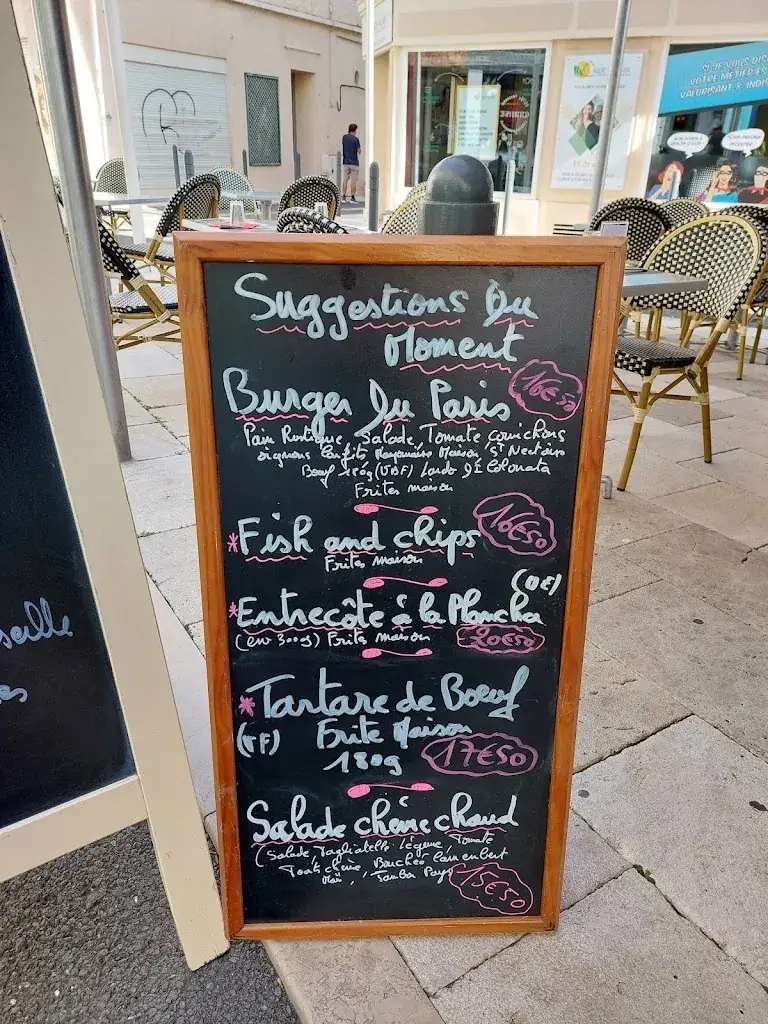 SI JE VOUS DISAIS
VOTRE MÉTIER ES
VALORISANT & INDIS
Suggestions Du
Moment
Burger Du Paris
16€50
Pain Rustique, Salade, Tomate cornichons
oignons confits Mayonnaise Maison, St Nectaire
Bœuf 180g (VBF) Lardo di Colonata
Frites maison
*Fish and chips
16€50
Frites maison
*Entrecôte à la Plancha
(env 300g) Frites maison
20€50
*Tartare de Bœuf
(VF) Frite Maison
180g
17€50
Salade chèvre chaud
(Salade, Tagliatelle Légume, Tomate
Toast chèvre, Bouchée Camembert
Jambon Pays
15€50